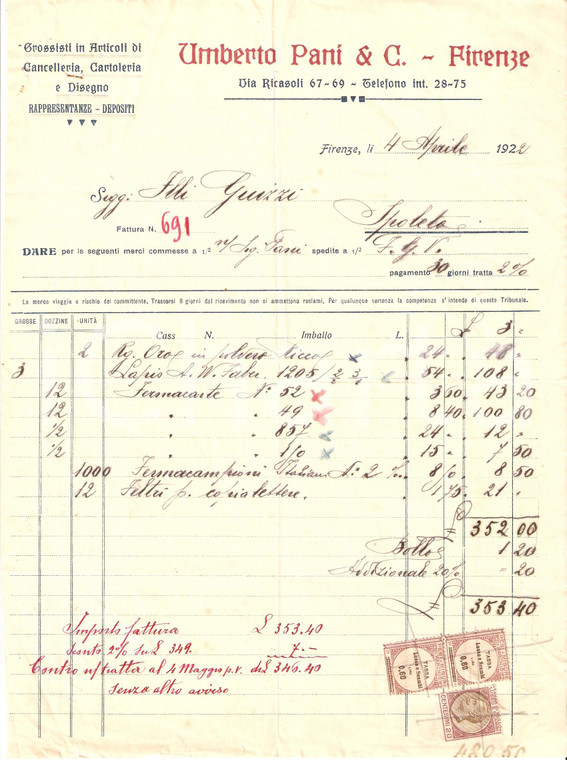 Grossisti in Articoli di
Cancelleria, Cartoleria
e Disegno
RAPPRESENTANZE - DEPOSITI
Umberto Pani & C. - Firenze
Via Ricasoli 67-69 - Telefono int. 28-75
Firenze, li 4 Aprile 1922
Sigg: Flli Guizzi
Fattura N. 691
Spoleto
DARE per le seguenti merci commesse a 1/2 n/ Sig. Pani spedite a 1/2 F. G. V.
pagamento 30 giorni tratta 2%
La merce viaggia a rischio del committente. Trascorsi 8 giorni dal ricevimento non si ammettono reclami. Per qualunque vertenza la competenza s'intende di questo Tribunale.
GROSSE DOZZINE UNITÀ
Cass N. Imballo L. £ 3 "
2 Kg. Oro in polvere 24 " 48 "
3 Lapis A. W. Faber 1205/ 54 " 108 "
12 Fermacarte N° 52 3 60 43 20
12 " " 49 8 40 100 80
1/2 " " 857 24 " 12 "
1/2 " " 1/0 15 " 7 50
1000 Fermacampioni Italiani N° 2 % 8/0 8 50
12 Feltri p. copialettere. 1 75 21 "
352 00
Bollo 1 20
Addizionale 20% - 20
353 40
Importo fattura £ 353.40
Sconto 2% su £ 349. 7.-
Contro n/ tratta al 4 Maggio p.v. di £ 346.40
Senza altro avviso
TASSA
0,60
TASSA
0,60
CENTESIMI 20
480.50